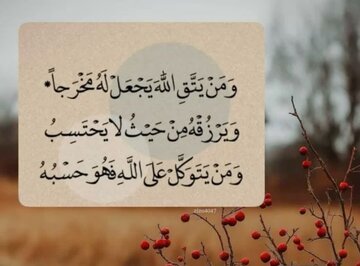 وَمَنْ يَتَّقِ اللَّهَ يَجْعَلْ لَهُ مَخْرَجاً *
وَيَرْزُقْهُ مِنْ حَيْثُ لَا يَحْتَسِبُ
وَمَنْ يَتَوَكَّلْ عَلَى اللَّهِ فَهُوَ حَسْبُهُ